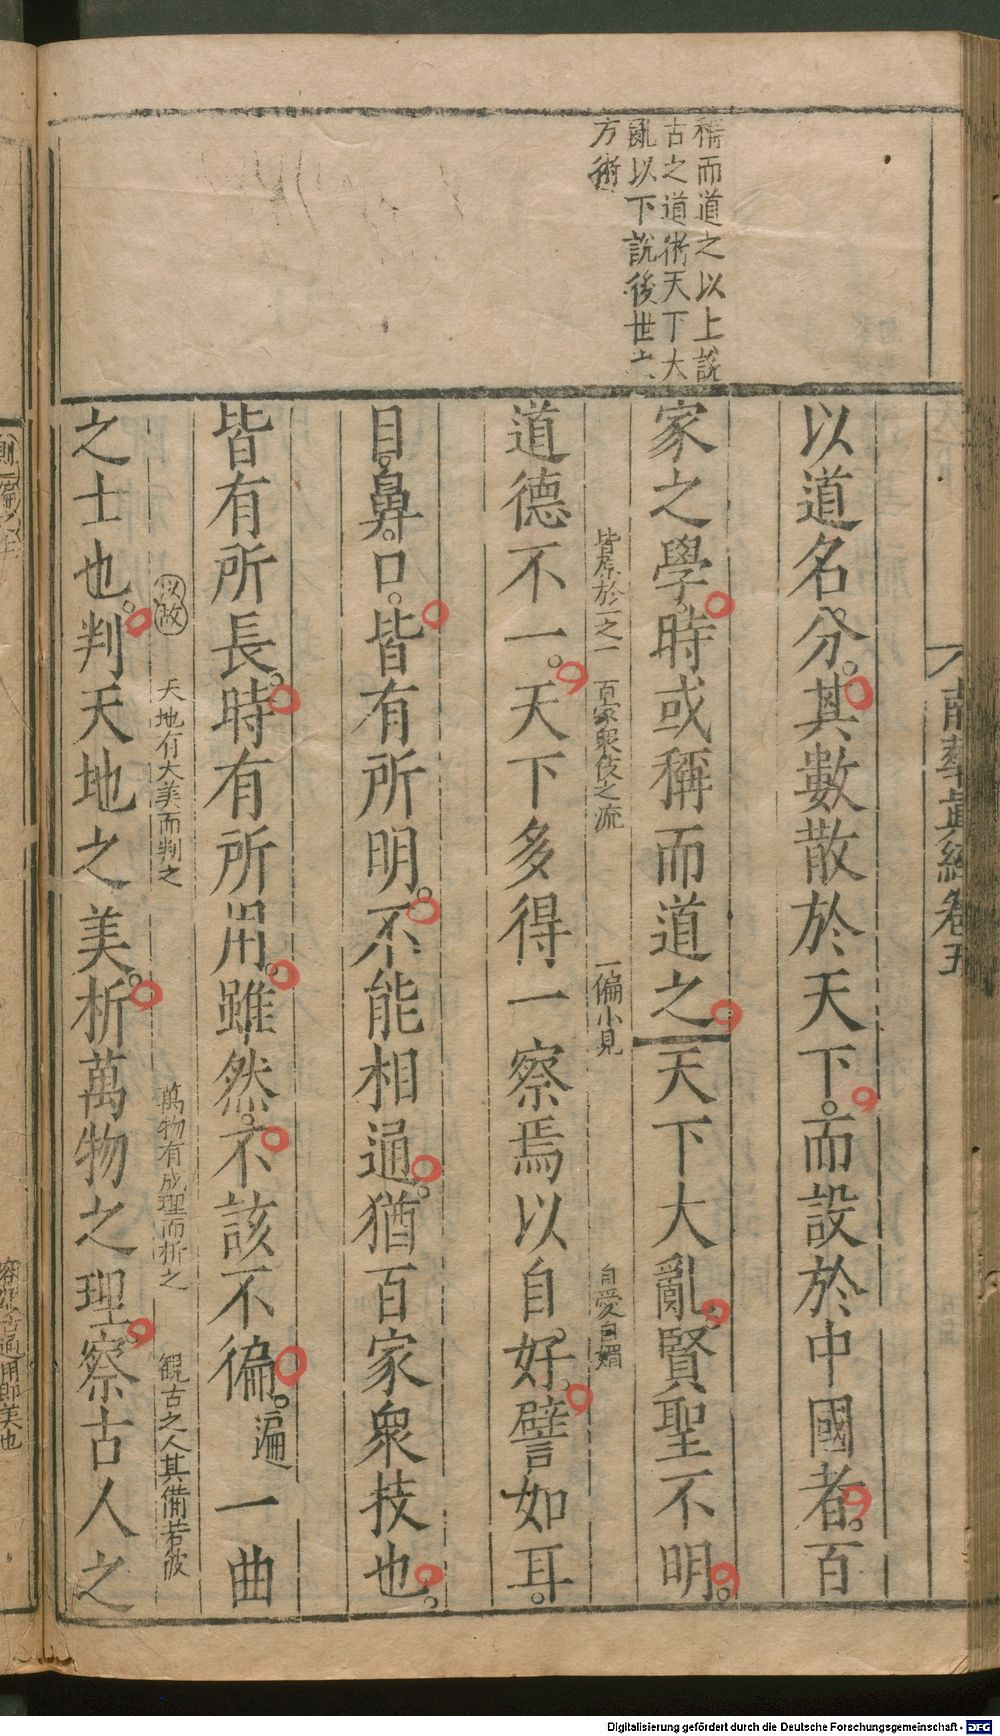 稱而道之以上說
古之道術天下大
亂以下說後世之
方術
南華真經卷五
以道名分其數散於天下而設於中國者百
家之學時或稱而道之天下大亂賢聖不明
皆原於一之一
百家衆伎之流
一偏小見
自愛自媚
道德不一天下多得一察焉以自好譬如耳
目鼻口皆有所明不能相通猶百家衆技也
皆有所長時有所用雖然不該不徧遍一曲
以故
天地有大美而判之
萬物有成理而析之
觀古之人其備若彼
之士也判天地之美析萬物之理察古人之
Digitalisierung gefördert durch die Deutsche Forschungsgemeinschaft - DFG